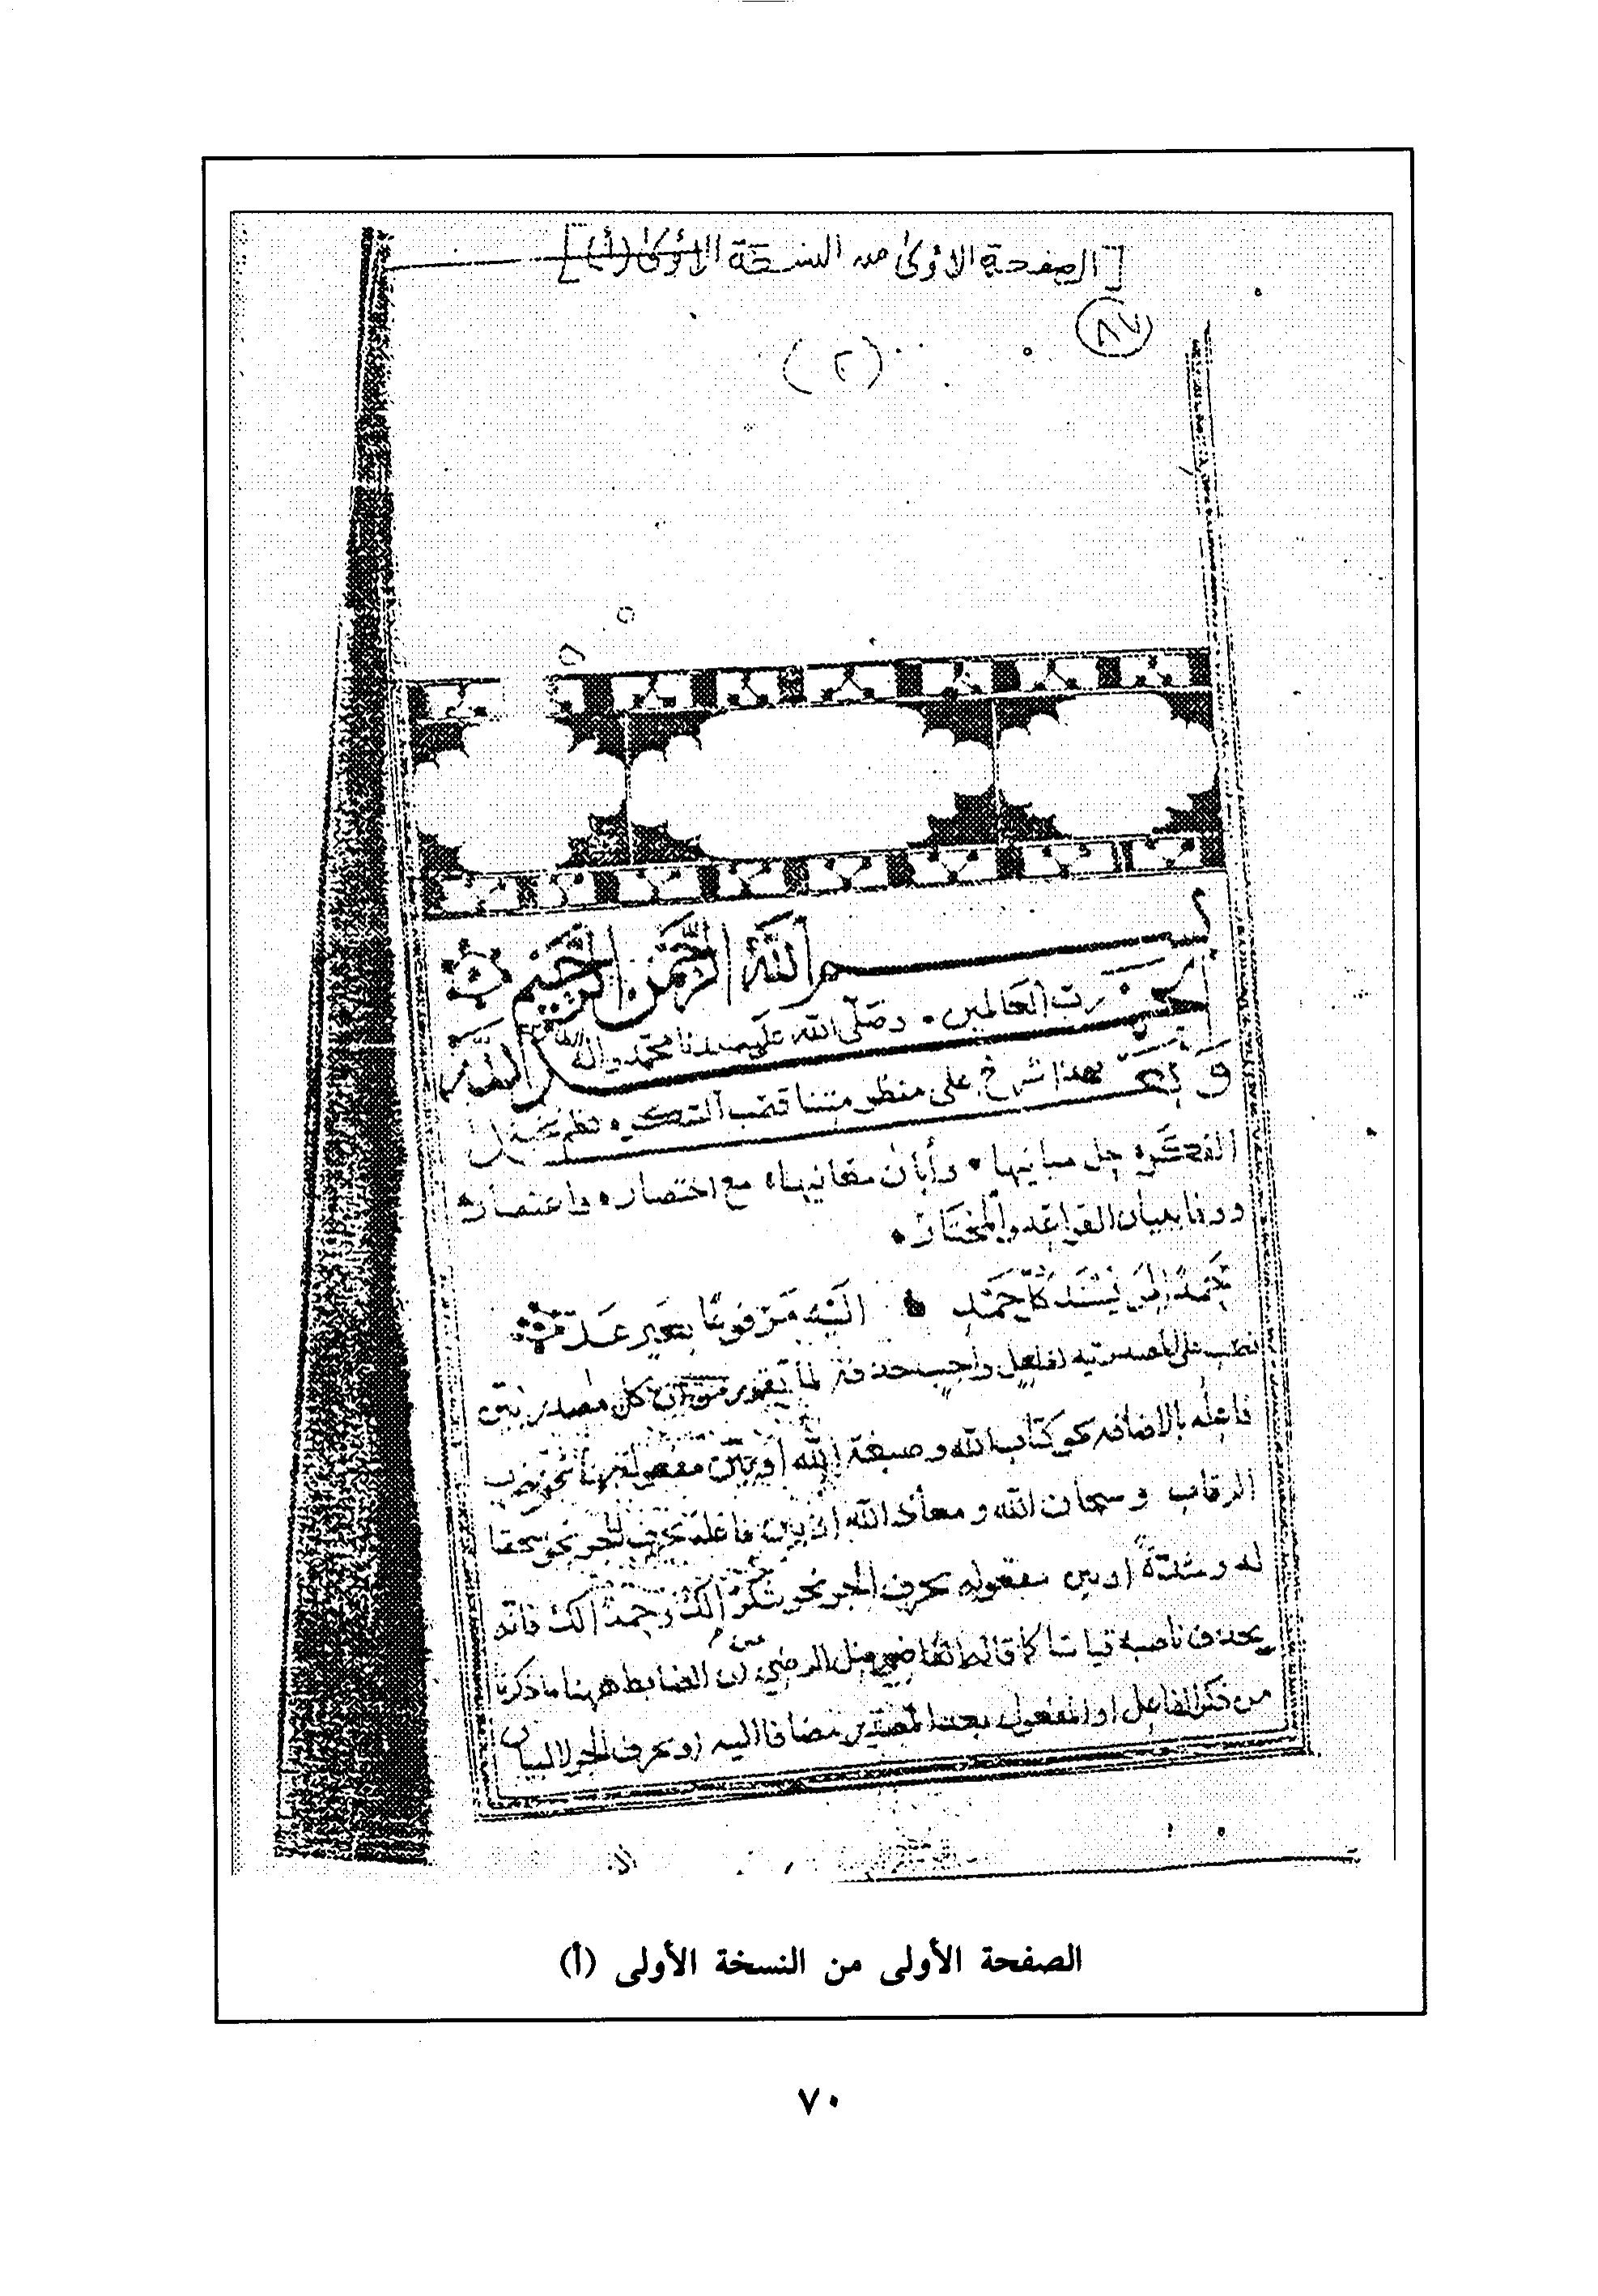 [الصفحة الاولى من النسخة الاولى (أ)]
٨٧
(٢)
بسم الله الرحمن الرحيم
الحمد لله رب العالمين وصلى الله على سيدنا محمد واله
وبعد فهذا شرح على منظومتنا
الفكره حل مبانيها وأبان معانيها مع اختصار واعتصار
ووفا ببيان القواعد والمختار
حمدًا لمن يسند كل حمد اليه مرفوعًا بغير عد
نصب على المصدرية لفاعل واجب حذفه لما تقرر من ان كل مصدر بين
فاعله بالاضافه نحو كتاب الله وصبغة الله او بين مفعوله بها نحو فضرب
الرقاب وسبحان الله ومعاذ الله او بين فاعله بحرف الجر نحو سحقا
له او بين مفعوله بحرف الجر نحو شكرًا لك وحمدًا لك فانه
يحذف ناصبه قياسا كما قاله الرضي لان الضابط ههنا ما ذكرنا
من ذكر الفاعل او المفعول بعد المصدر مضافا اليه او بحرف الجر لا لبيان
الصفحة الأولى من النسخة الأولى (أ)
٧٠